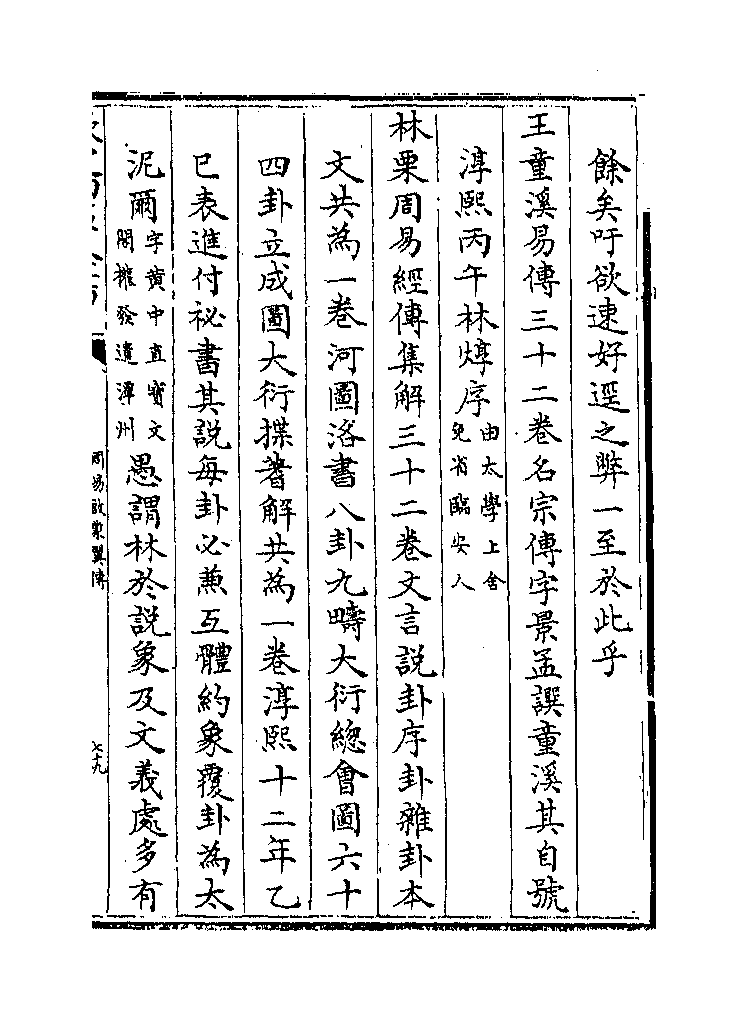 餘矣吁欲速好逕之弊一至於此乎
王童溪易傳三十二卷名宗傳字景孟譔童溪其自號
淳熙丙午林焞序由太學上舍免省臨安人
林栗周易經傳集解三十二卷文言說卦序卦雜卦本
文共為一卷河圖洛書八卦九疇大衍總會圖六十
四卦立成圖大衍揲蓍解共為一卷淳熙十二年乙
巳表進付祕書其說每卦必兼互體約象覆卦為太
泥爾字黄中直寳文閣擢發遣潭州愚謂林於説象及文義處多有
周易啟蒙翼傳
七十九